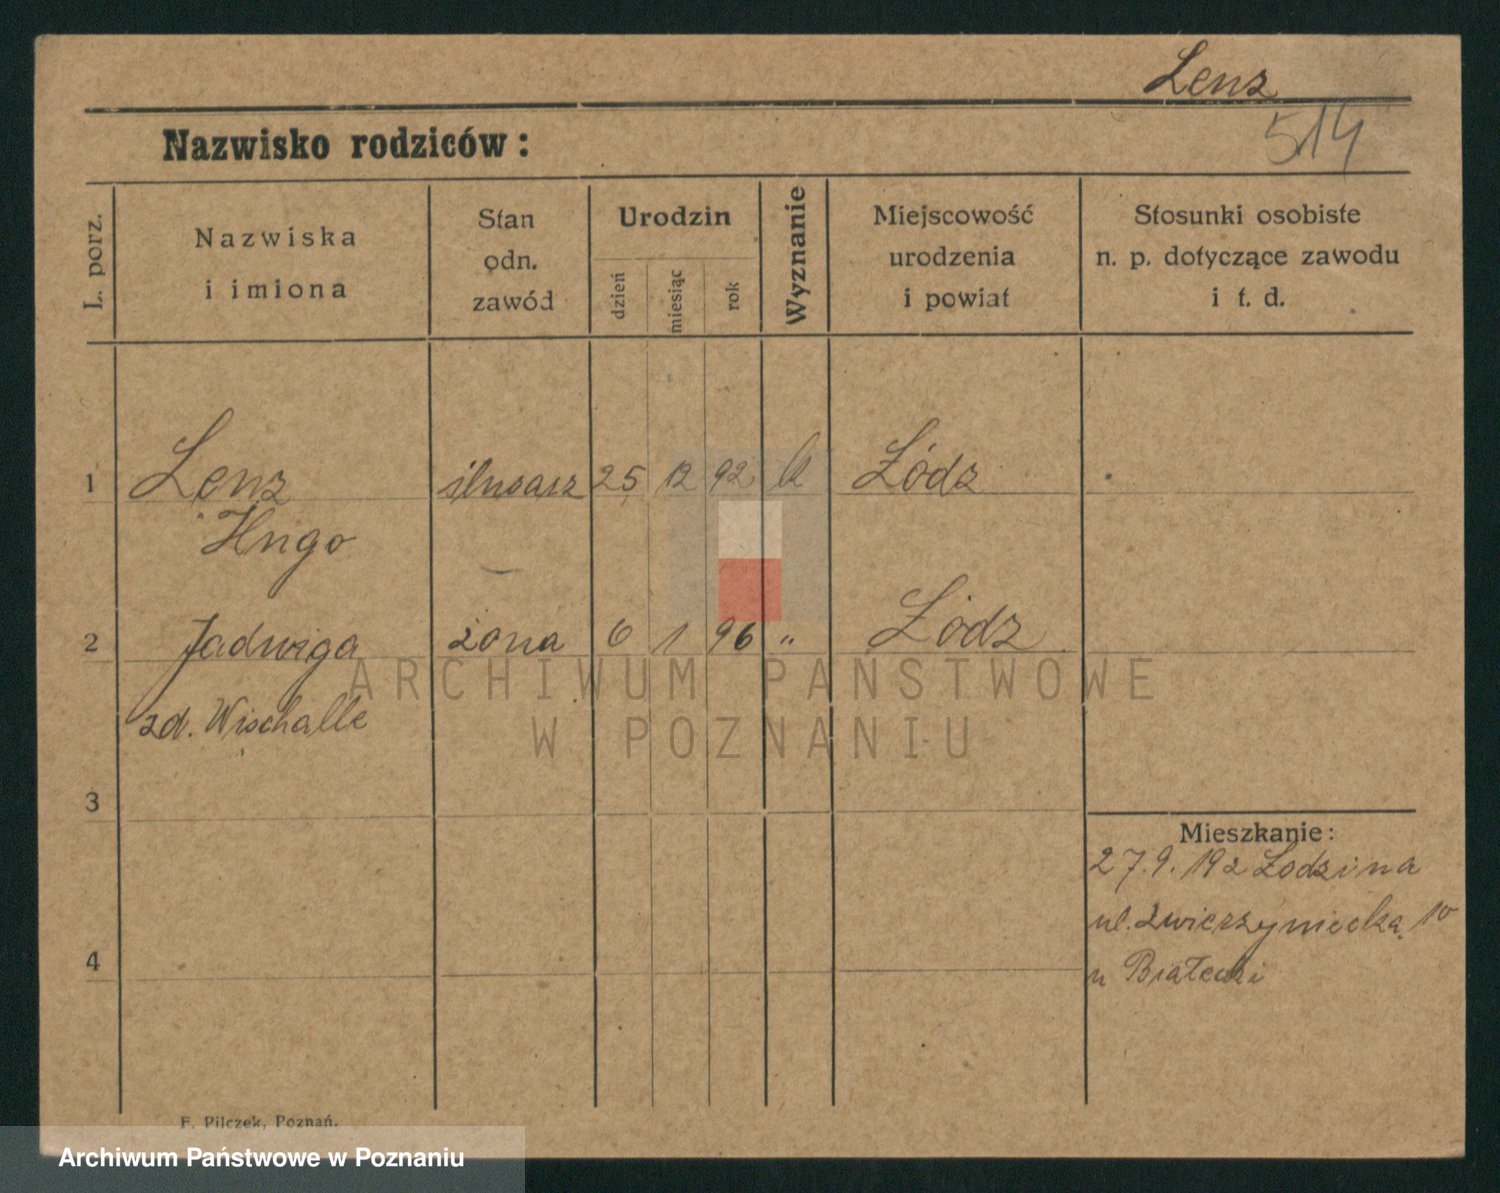 Lenz
514
Nazwisko rodziców:
L. porz.
Nazwiska
i imiona
Stan
odn.
zawód
Urodzin
dzień
miesiąc
rok
Wyznanie
Miejscowość
urodzenia
i powiat
Stosunki osobiste
n. p. dotyczące zawodu
i t. d.
1 Lenz ślusarz 25 12 92 k Łódz
Hugo
2 Jadwiga żona 6 1 96 " Łódz
zd. Wischalle
ARCHIWUM PAŃSTWOWE
W POZNANIU
3
Mieszkanie:
27.9.192 Łodzi na
ul. Zwierzyniecka 10
4
u Białecki
F. Pilczek, Poznań.
Archiwum Państwowe w Poznaniu